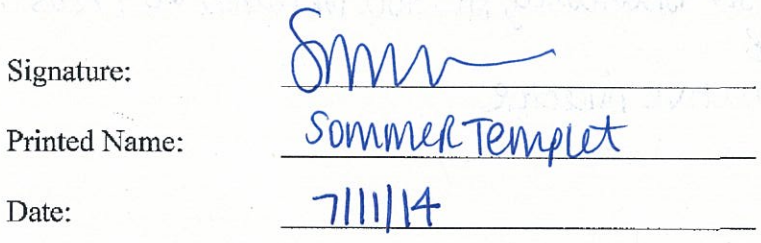 Signature:
Printed Name: Sommer Templet
Date: 7/11/14